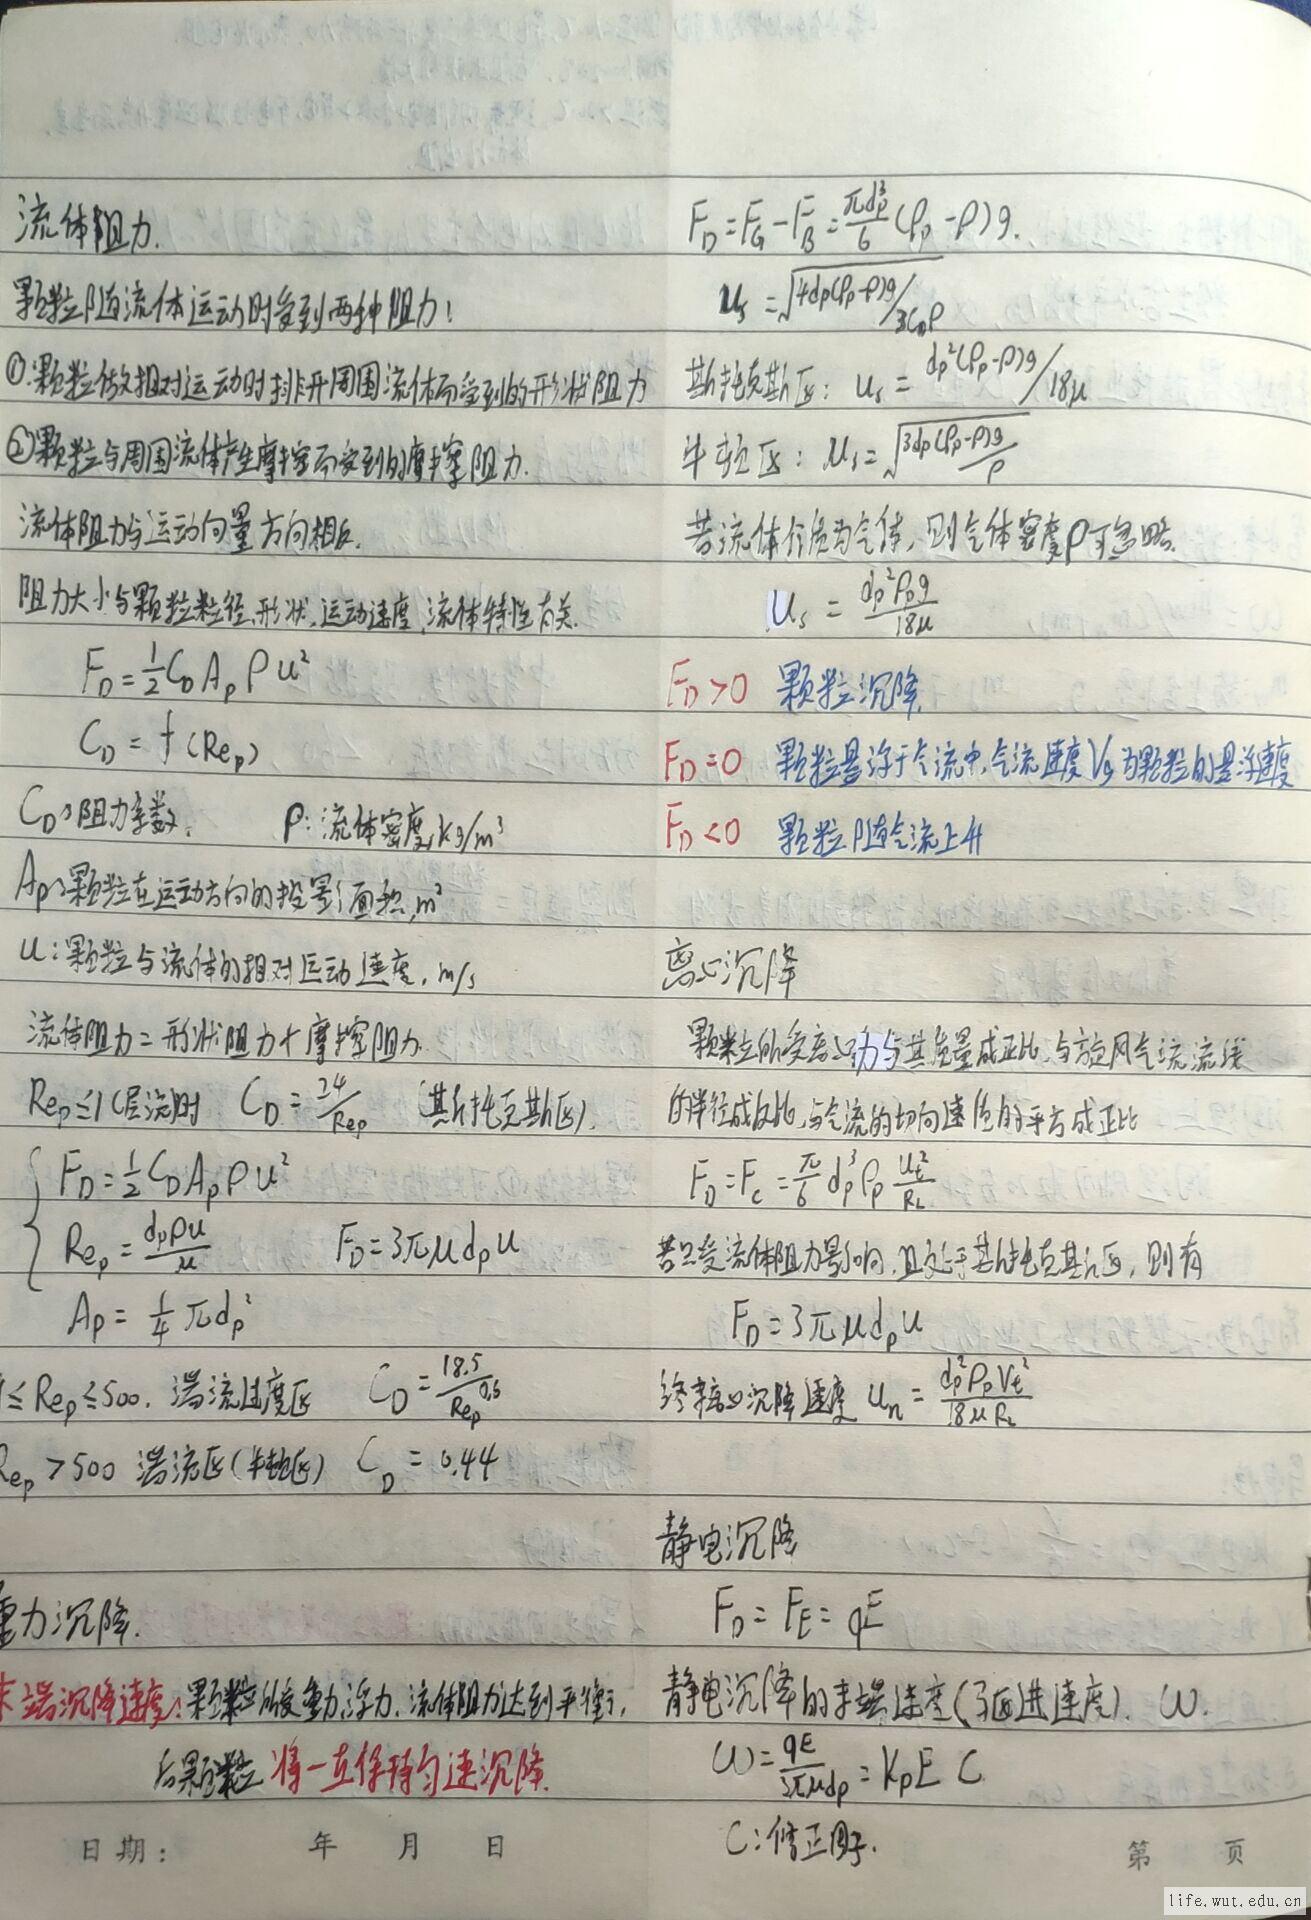 流体阻力.
颗粒随流体运动时受到两种阻力:
①.颗粒做相对运动时排开周围流体而受到的形状阻力
②颗粒与周围流体产生摩擦而受到的摩擦阻力.
流体阻力与运动向量方向相反.
阻力大小与颗粒粒径、形状、运动速度、流体特性有关.
F_D = 1/2 C_D A_p ρ u²
C_D = f(Re_p)
C_D:阻力系数. ρ: 流体密度, kg/m³
A_p:颗粒在运动方向的投影面积, m²
u:颗粒与流体的相对运动速度, m/s
流体阻力=形状阻力+摩擦阻力.
Re_p≤1(层流)时 C_D = 24/Re_p (斯托克斯区).
F_D = 1/2 C_D A_p ρ u²
Re_p = d_p ρ u/μ F_D = 3πμd_p u
A_p = 1/4 π d_p²
1≤Re_p≤500. 湍流过度区 C_D = 18.5/Re_p^0.6
Re_p>500 湍流区(牛顿区) C_D = 0.44
重力沉降.
末端沉降速度:颗粒所受重力、浮力、流体阻力达到平衡,
后颗粒将一直保持匀速沉降.
日期: 年 月 日
F_D = F_G - F_B = πd_p³/6 (ρ_p - ρ)g.
u_s = √4d_p(ρ_p-ρ)g/3C_Dρ
斯托克斯区: u_s = d_p²(ρ_p-ρ)g/18μ
牛顿区: u_s = √3d_p(ρ_p-ρ)g/ρ
若流体介质为气体, 则气体密度ρ可忽略.
u_s = d_p²ρ_p g/18μ
F_D>0 颗粒沉降.
F_D=0 颗粒悬浮于气流中,气流速度V_s为颗粒的悬浮速度
F_D<0 颗粒随气流上升
离心沉降
颗粒所受离心力与其质量成正比、与旋风气流流线
的半径成反比,与气流的切向速度的平方成正比
F_D = F_c = π/6 d_p³ ρ_p u_t²/R_L
若只受流体阻力影响,且处于斯托克斯区, 则有
F_D = 3πμd_p u
终末离心沉降速度 u_n = d_p²ρ_pV_t²/18μR_L
静电沉降
F_D = F_E = qE
静电沉降的末端速度(驱进速度). ω.
ω = qE/3πμd_p = K_p E C
C:修正因子.
第 页
life.wut.edu.cn